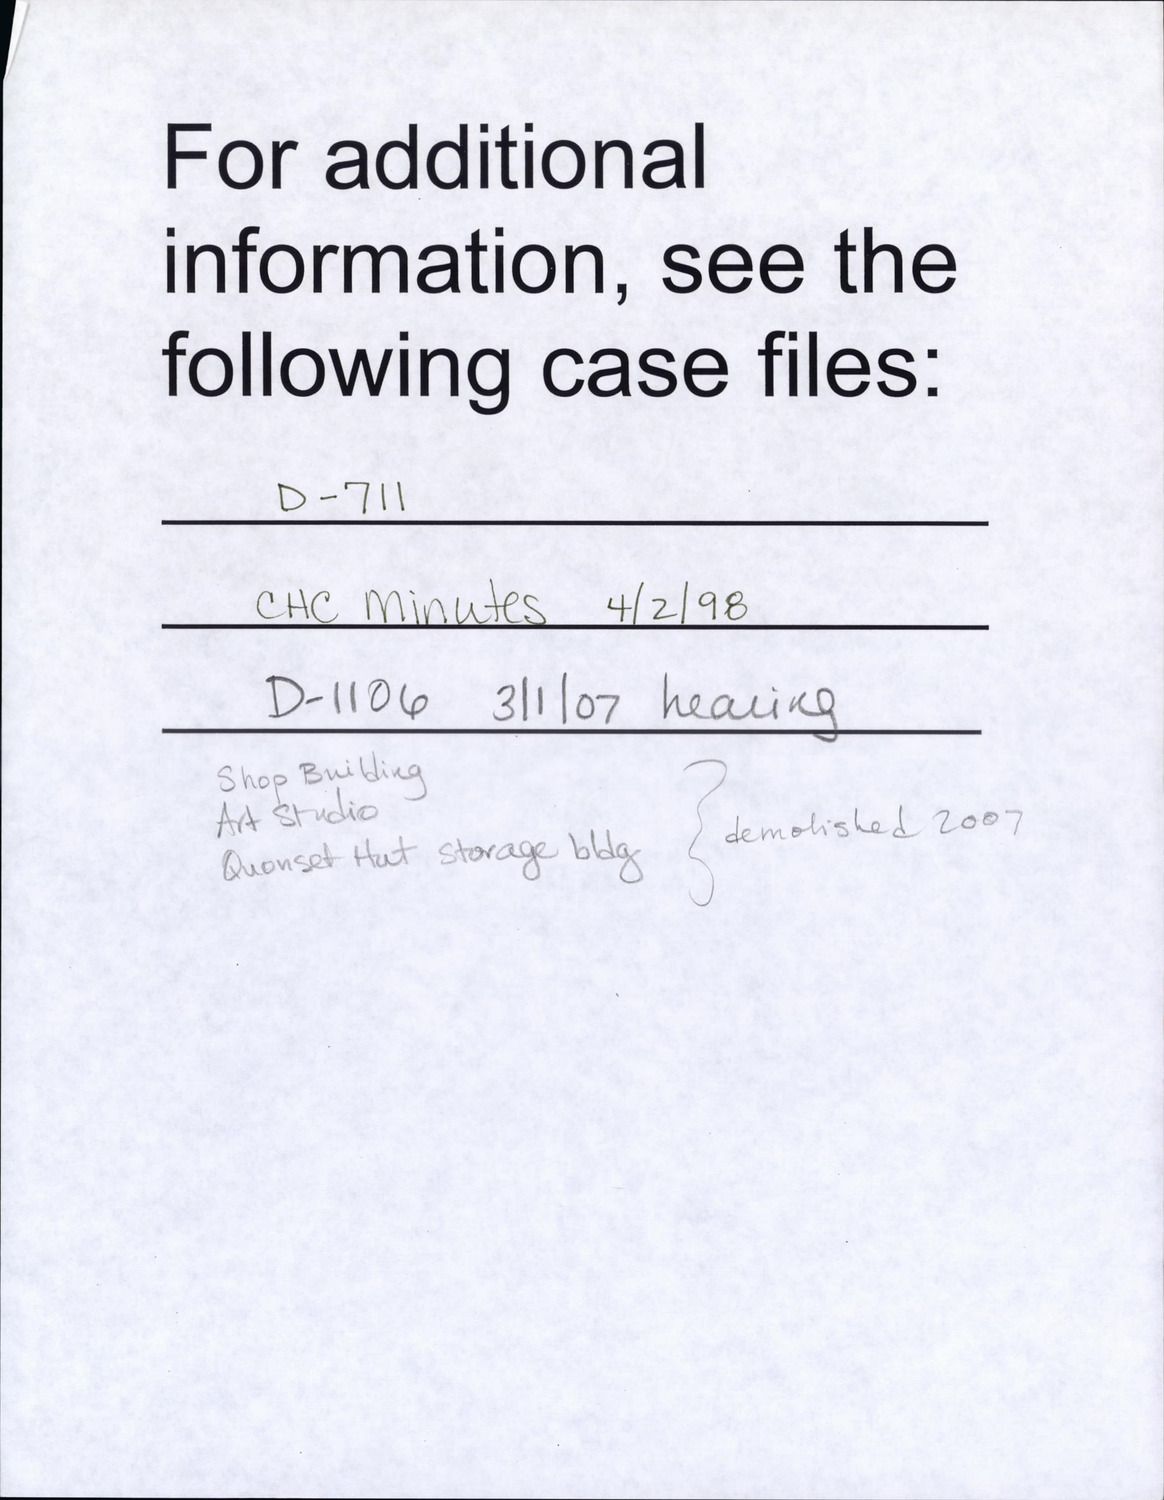 For additional
information, see the
following case files:
D-711
CHC Minutes 4/2/98
D-1106 3/1/07 hearing
Shop Building
Art Studio
Quonset Hut storage bldg
} demolished 2007